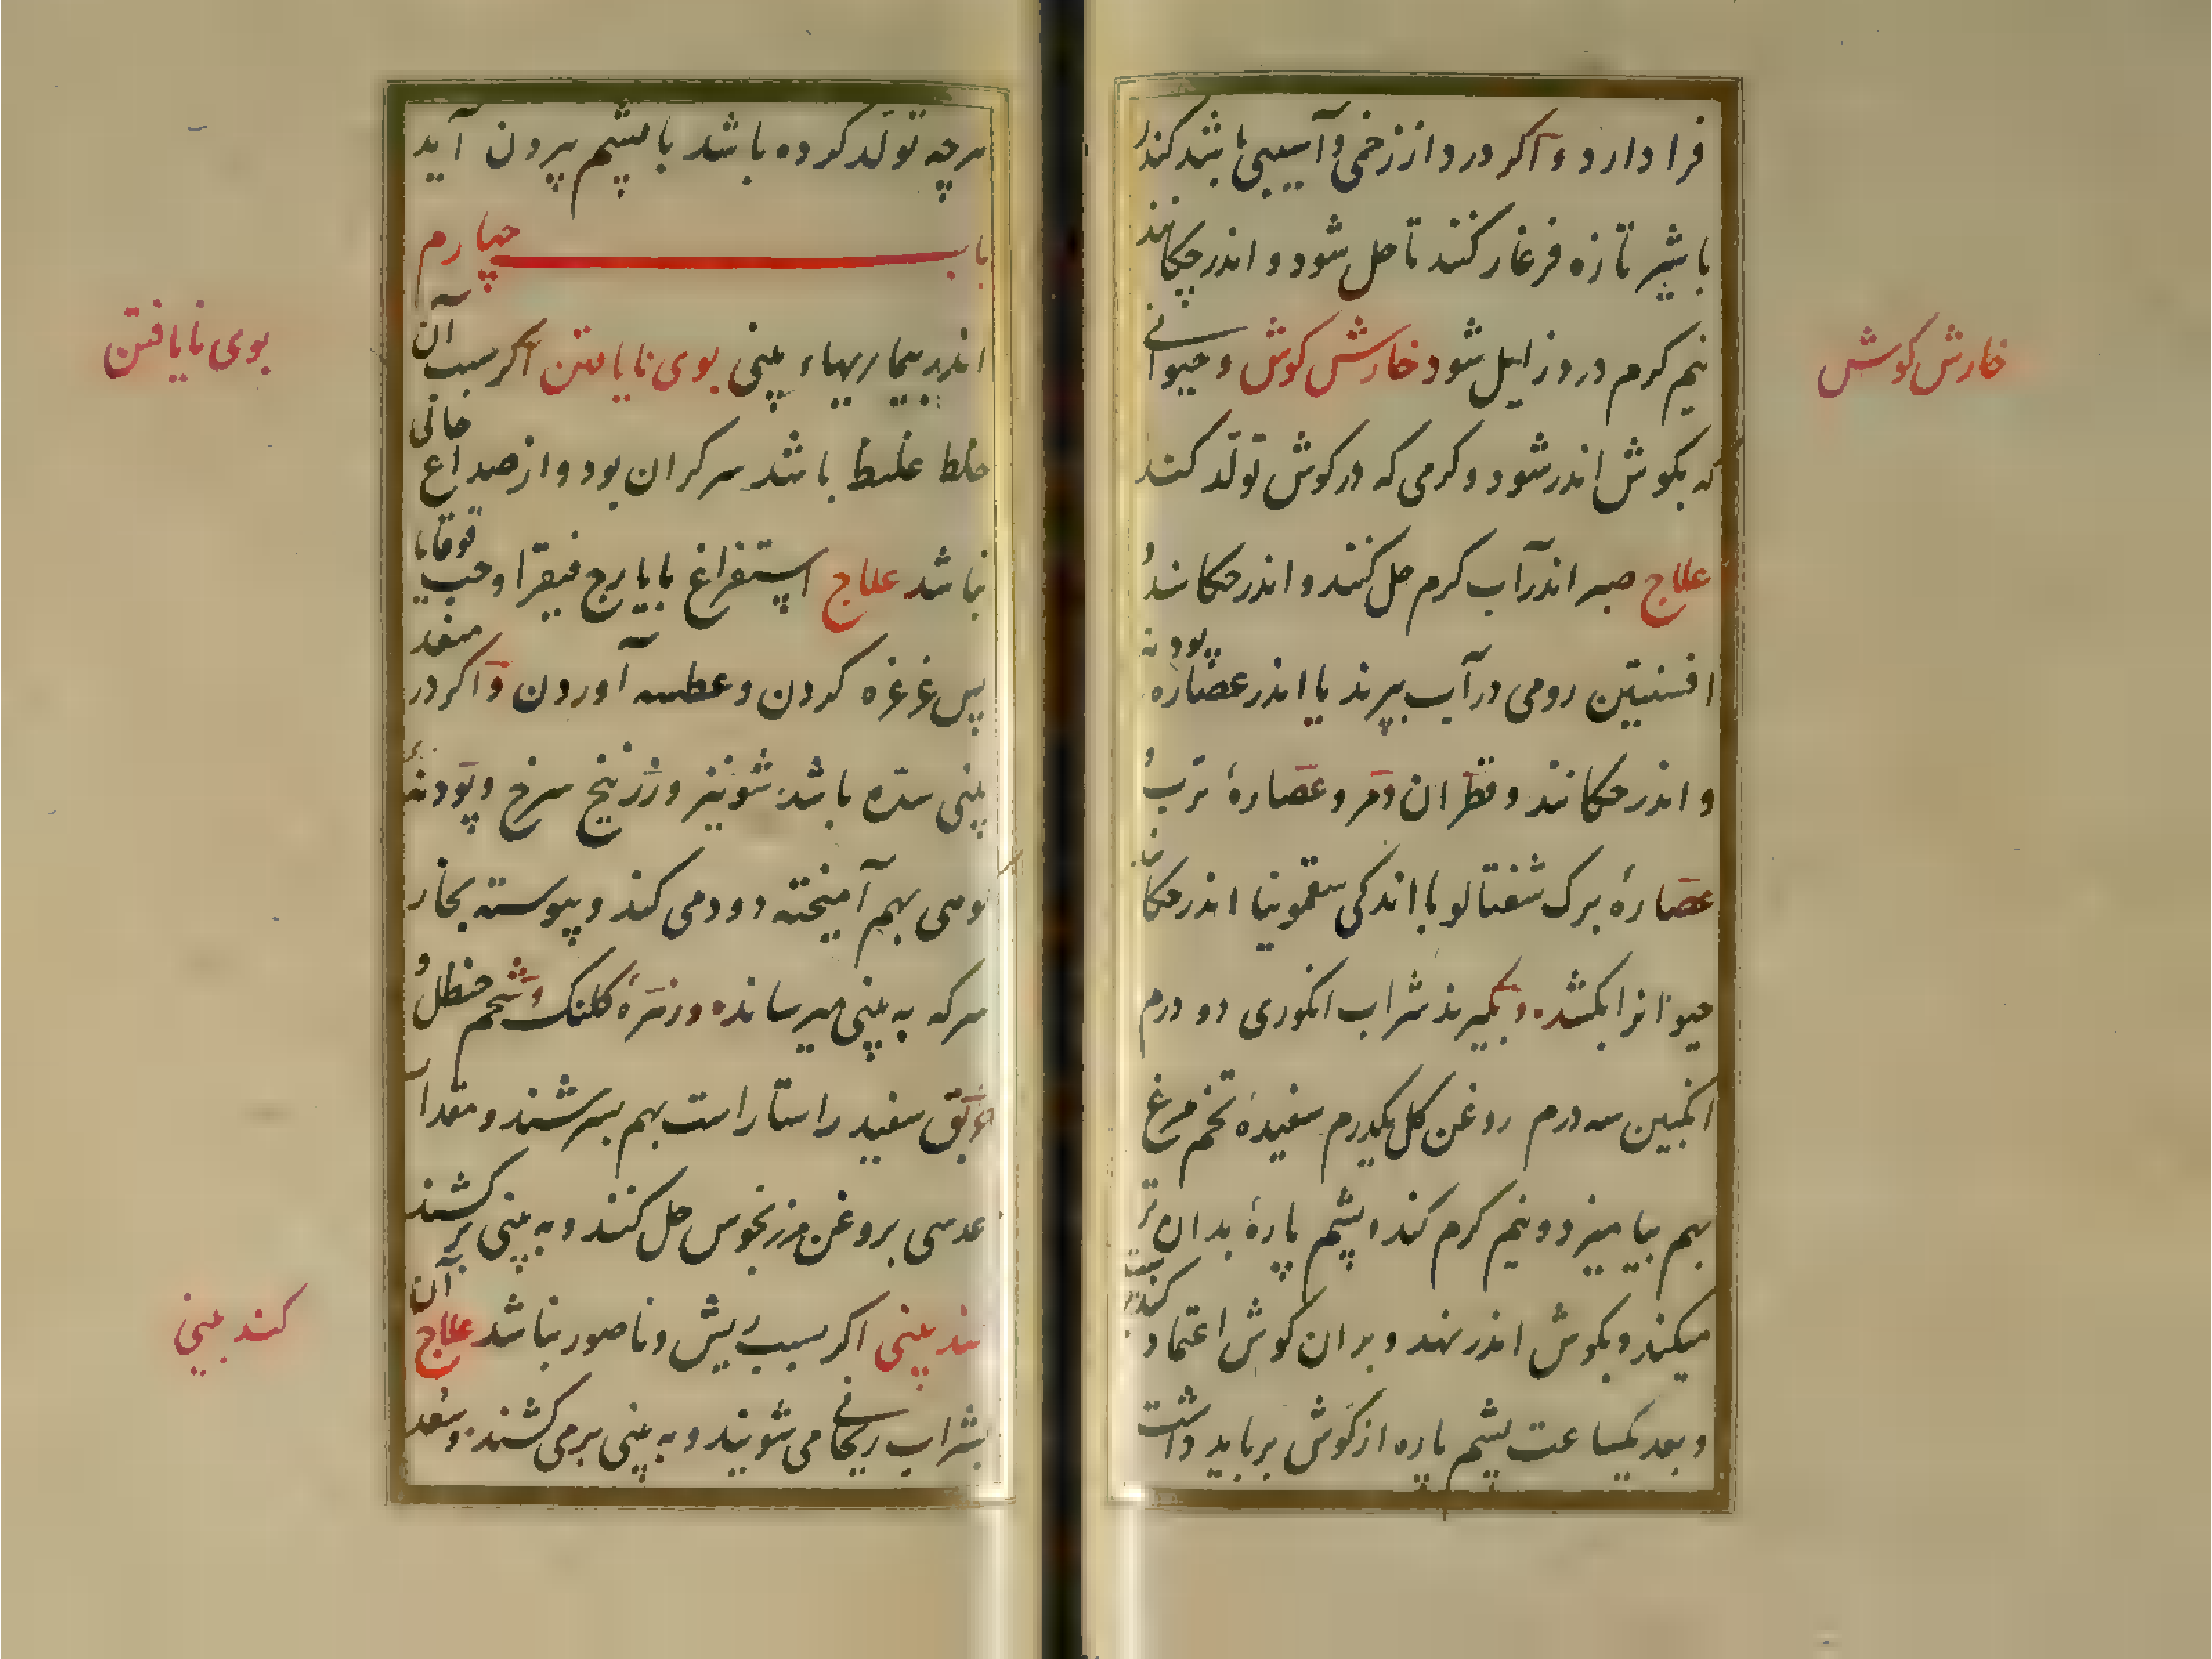 فرا دارد و اکر درد از زخمی و آسیبی باشد کندر
با شیر تازه فرغار کنند تا حل شود و اندر چکانند
نیم کرم درد زایل شود خارش کوش و حیوانی
خارش کوش
که بکوش اندر شود و کرمی که در کوش تولّد کند
علاج صبر اندر آب کرم حل کنند و اندر چکانند و
افسنتین رومی در آب بپزند یا اندر عصاره پودنه
و اندر چکانند و قطران و مر و عصارهٔ ترب و
عصارهٔ برک شفتالو با اندکی سقمونیا اندر چکانند
حیوانرا بکشد و بکیرند شراب انکوری دو درم
انکبین سه درم روغن کل یکدرم سفیدهٔ تخم مرغ
بهم بیامیزد و نیم کرم کند و پشم پارهٔ بدان تر
میکند و بکوش اندر نهد و بر ان کوش اعتماد
و بعد یکساعت پشم پاره از کوش برباید داشت
هرچه تولّد کرده باشد با پشم بیرون آید
باب چهارم
اندر بیماریهاء بینی بوی نایافتن اکر سبب آن
بوی نایافتن
خلط غلیظ باشد سر کران بود و از صداع خالی
نباشد علاج استفراغ بایارج فیقرا و حب قوقایا
پس غرغره کردن و عطسه آوردن و اکر در منفذ
بینی سدّه باشد شونیز و زرنیخ سرخ و پودنهٔ
بهم آمیخته دود می کند و پیوسته بخار
سرکه به بینی میرساند و زهرهٔ کلنک و شحم حنظل و
خربق سفید راستا راست بهم بسرشند و مقدار
عدسی بروغن مرزنجوس حل کنند و به بینی برکشند
کند بینی اکر بسبب ریش و ناصور نباشد علاج آن
کند بینی
بشراب ریحانی می شویند و به بینی برمی کشند و سعد